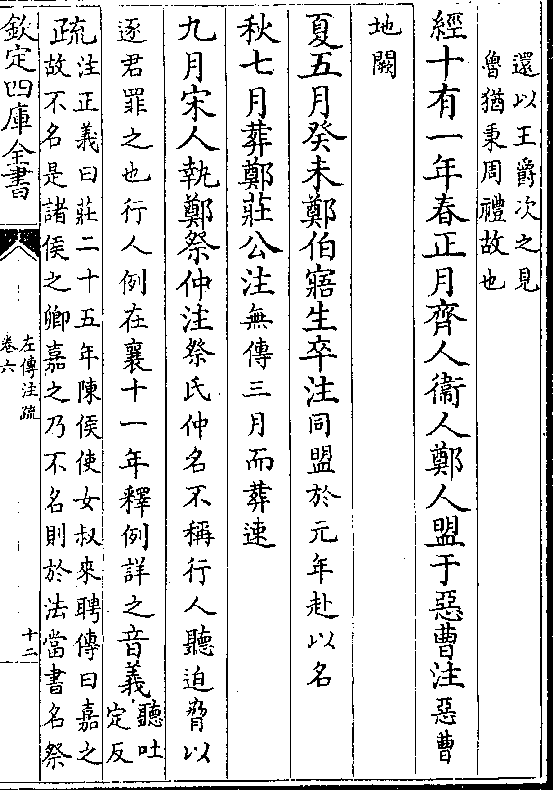 還以王爵次之見
魯猶秉周禮故也
經十有一年春正月齊人衞人鄭人盟于惡曹注惡曹
地闕
夏五月癸未鄭伯寤生卒注同盟於元年赴以名
秋七月葬鄭莊公注無傳三月而葬速
九月宋人執鄭祭仲注祭氏仲名不稱行人聽迫脅以
逐君罪之也行人例在襄十一年釋例詳之音義聽吐
定反
疏注正義曰莊二十五年陳侯使女叔來聘傳曰嘉之
故不名是諸侯之卿嘉之乃不名則於法當書名祭
欽定四庫全書
左傳注疏
卷六
十二